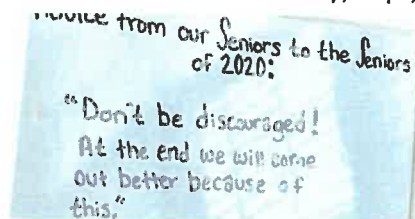 Advice from our Seniors to the Seniors
of 2020:
"Don't be discouraged!
At the end we will come
out better because of
this."